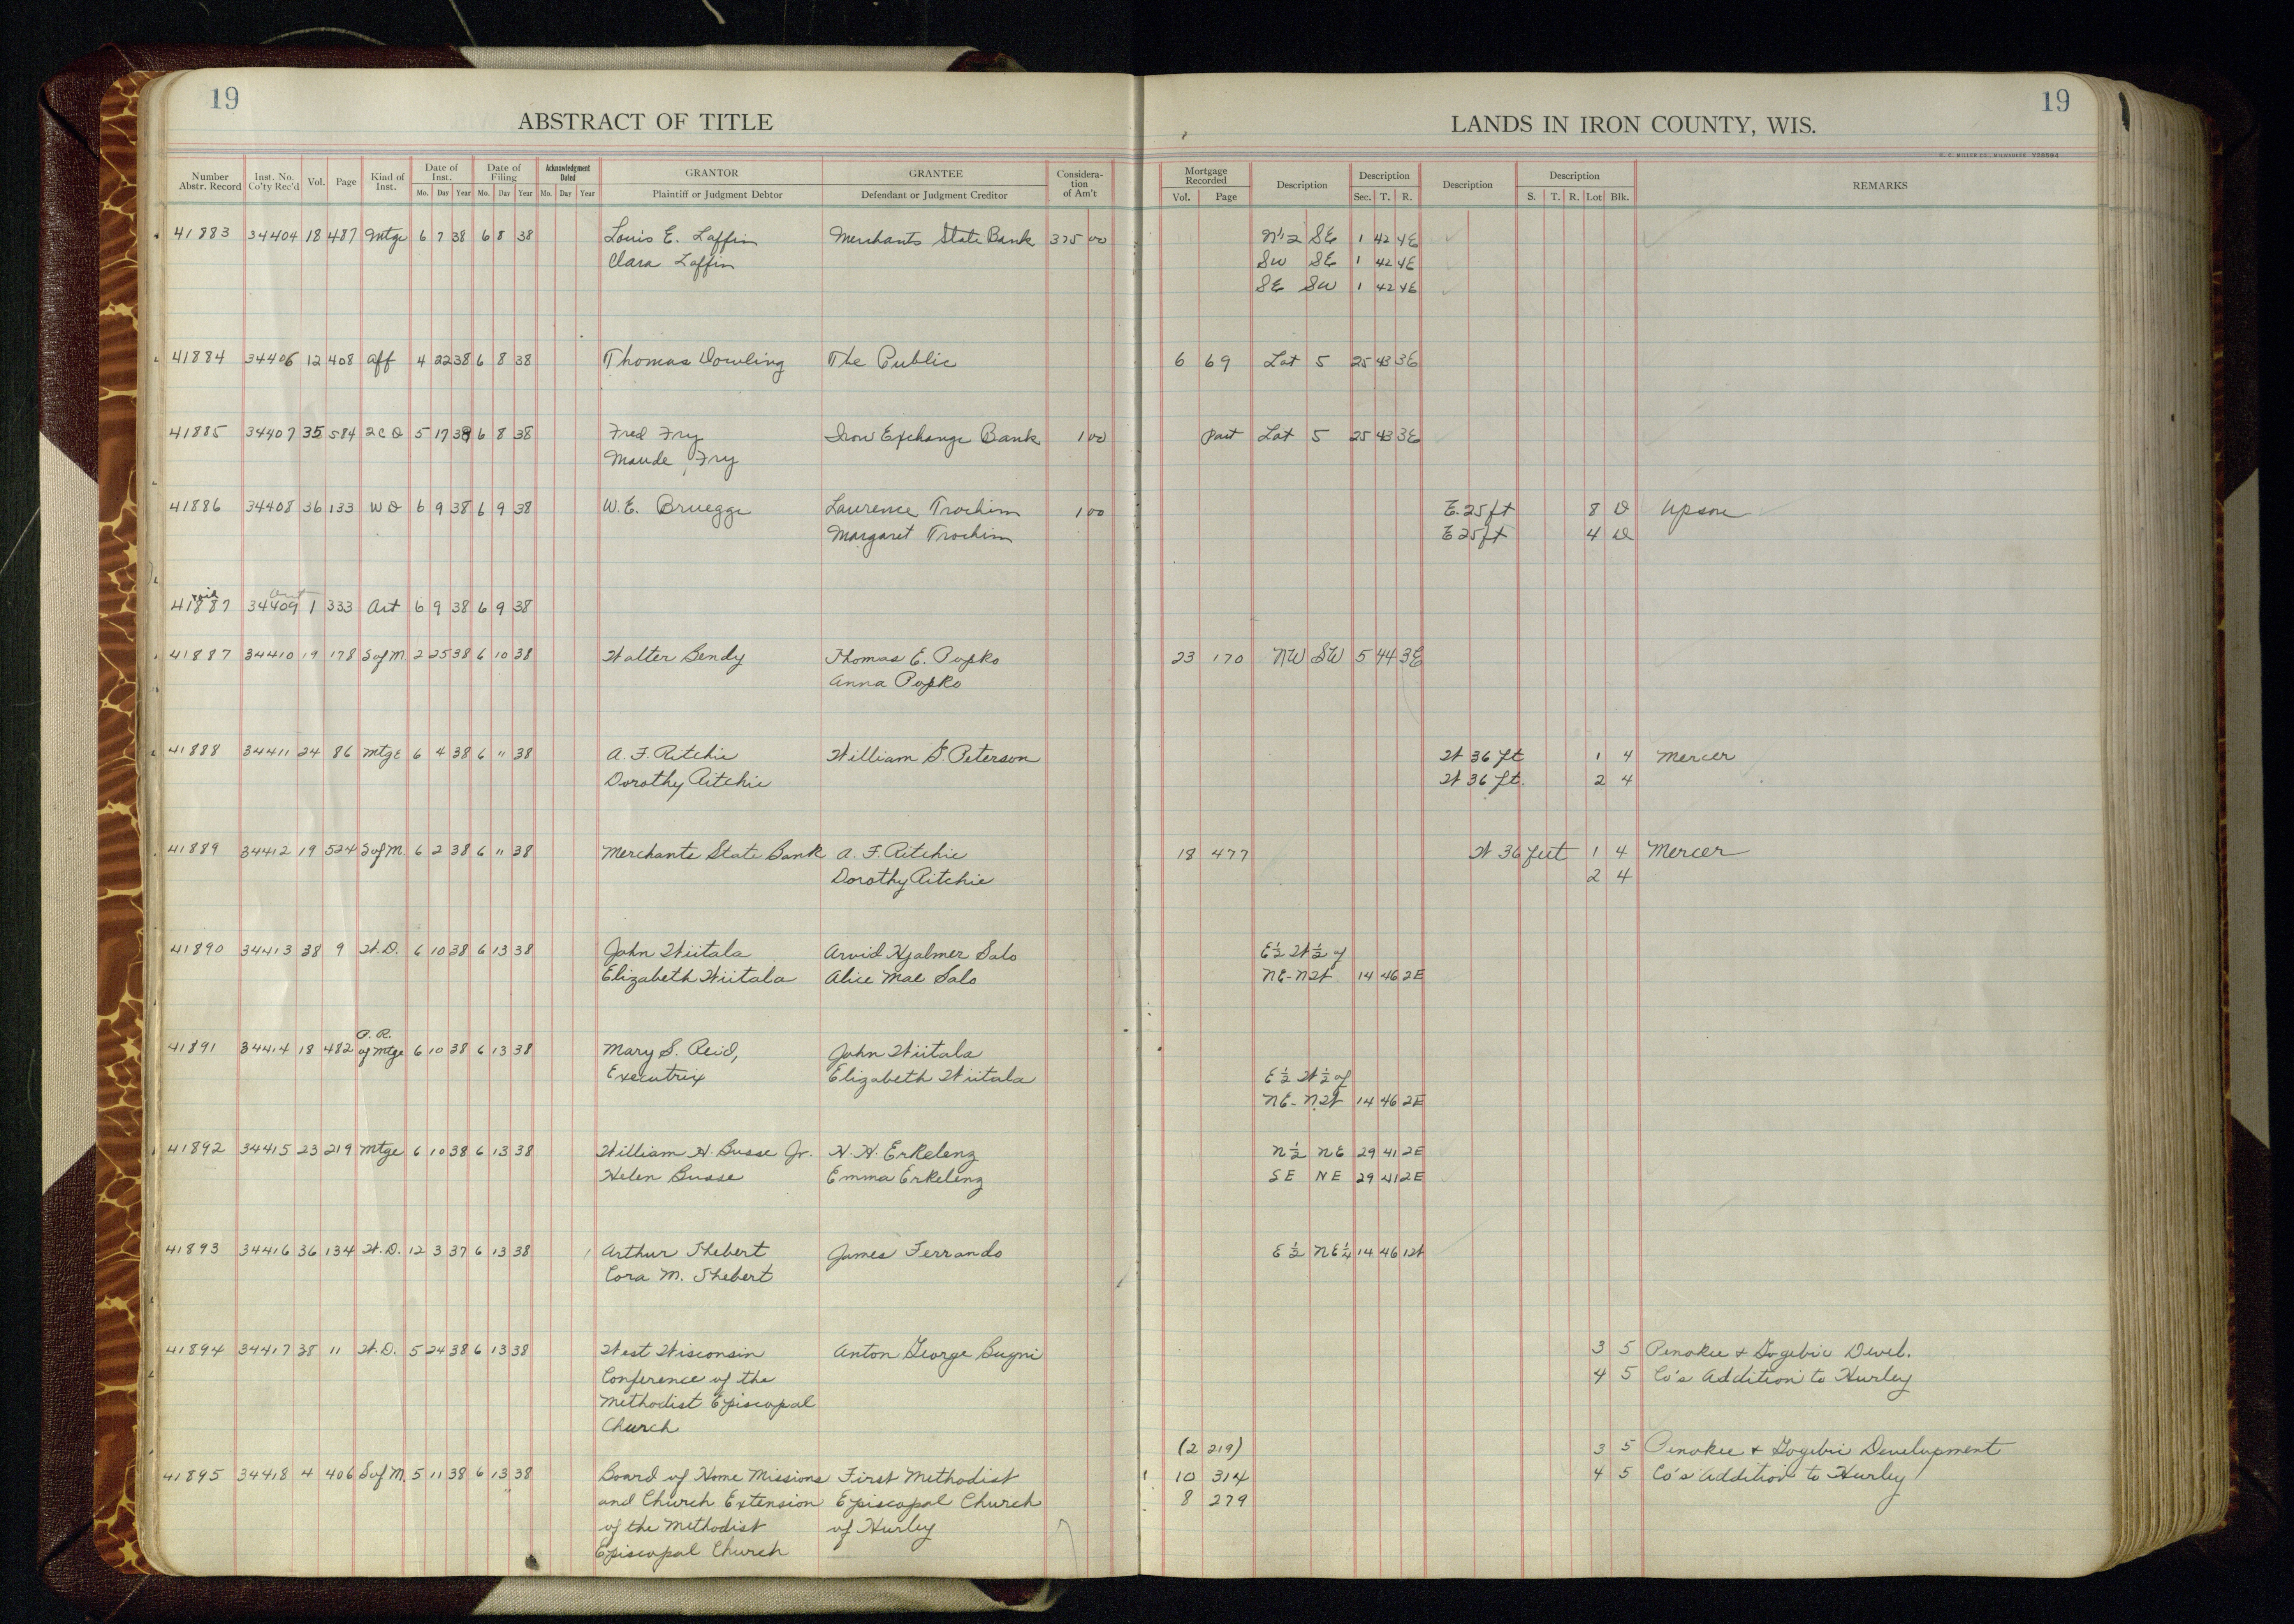 19
ABSTRACT OF TITLE
LANDS IN IRON COUNTY, WIS.
19
H. C. MILLER CO., MILWAUKEE
Number Abstr. Record Inst. No. Co'ty Rec'd Vol. Page Kind of Inst. Date of Inst. Mo. Day Year Date of Filing Mo. Day Year Acknowledgment Dated Mo. Day Year GRANTOR Plaintiff or Judgment Debtor GRANTEE Defendant or Judgment Creditor Considera-tion of Am't Mortgage Recorded Vol. Page Description Description Sec. T. R. Description Description S. T. R. Lot Blk. REMARKS
41883 34404 18 487 Mtge 6 7 38 6 8 38 Louis E. Laffin Merchants State Bank 375 00 N 1/2 SE 1 42 4E
Clara Laffin SW SE 1 42 4E
SE SW 1 42 4E
41884 34406 12 408 Aff 4 22 38 6 8 38 Thomas Dowling The Public 6 69 Lot 5 25 43 3E
41885 34407 35 584 2 C D 5 17 38 6 8 38 Fred Fry Iron Exchange Bank 1 00 Part Lot 5 25 43 3E
Maude Fry
41886 34408 36 133 W D 6 9 38 6 9 38 W. E. Bruegge Laurence Trochim 1 00 E. 25 ft 8 D Upson
Margaret Trochim E 25 ft 4 D
void Art
41887 34409 1 333 Art 6 9 38 6 9 38
41887 34410 19 178 S of M 2 25 38 6 10 38 Walter Bendy Thomas E. Popko 23 170 NW SW 5 44 3E
Anna Popko
41888 34411 24 86 Mtge 6 4 38 6 11 38 A. F. Ritchie William G. Peterson W 36 ft 1 4 Mercer
Dorothy Ritchie W 36 ft. 2 4
41889 34412 19 524 S of M. 6 2 38 6 11 38 Merchants State Bank A. F. Ritchie 18 477 W 36 feet 1 4 Mercer
Dorothy Ritchie 2 4
41890 34413 38 9 W. D. 6 10 38 6 13 38 John Wiitala Arvid Hjalmer Salo E 1/2 W 1/2 of
Elizabeth Wiitala Alice Mae Salo NE-NW 14 46 2E
P. R.
41891 34414 18 482 of Mtge 6 10 38 6 13 38 Mary S. Reid, John Wiitala
Executrix Elizabeth Wiitala E 1/2 W 1/2 of
NE-NW 14 46 2E
41892 34415 23 219 Mtge 6 10 38 6 13 38 William H. Busse Jr. H. H. Erkelenz N 1/2 NE 29 41 2E
Helen Busse Emma Erkelenz SE NE 29 41 2E
41893 34416 36 134 W. D. 12 3 37 6 13 38 Arthur Thebert James Ferrando E 1/2 NE 1/4 14 46 1W
Cora M. Thebert
41894 34417 38 11 W. D. 5 24 38 6 13 38 West Wisconsin Anton George Bugni 3 5 Penokee & Gogebic Devel.
Conference of the 4 5 Co's Addition to Hurley
Methodist Episcopal
Church
(2 219) 3 5 Penokee & Gogebic Development
41895 34418 4 406 S of M. 5 11 38 6 13 38 Board of Home Missions First Methodist 10 314 4 5 Co's Addition to Hurley
and Church Extension Episcopal Church 8 279
of the Methodist of Hurley
Episcopal Church